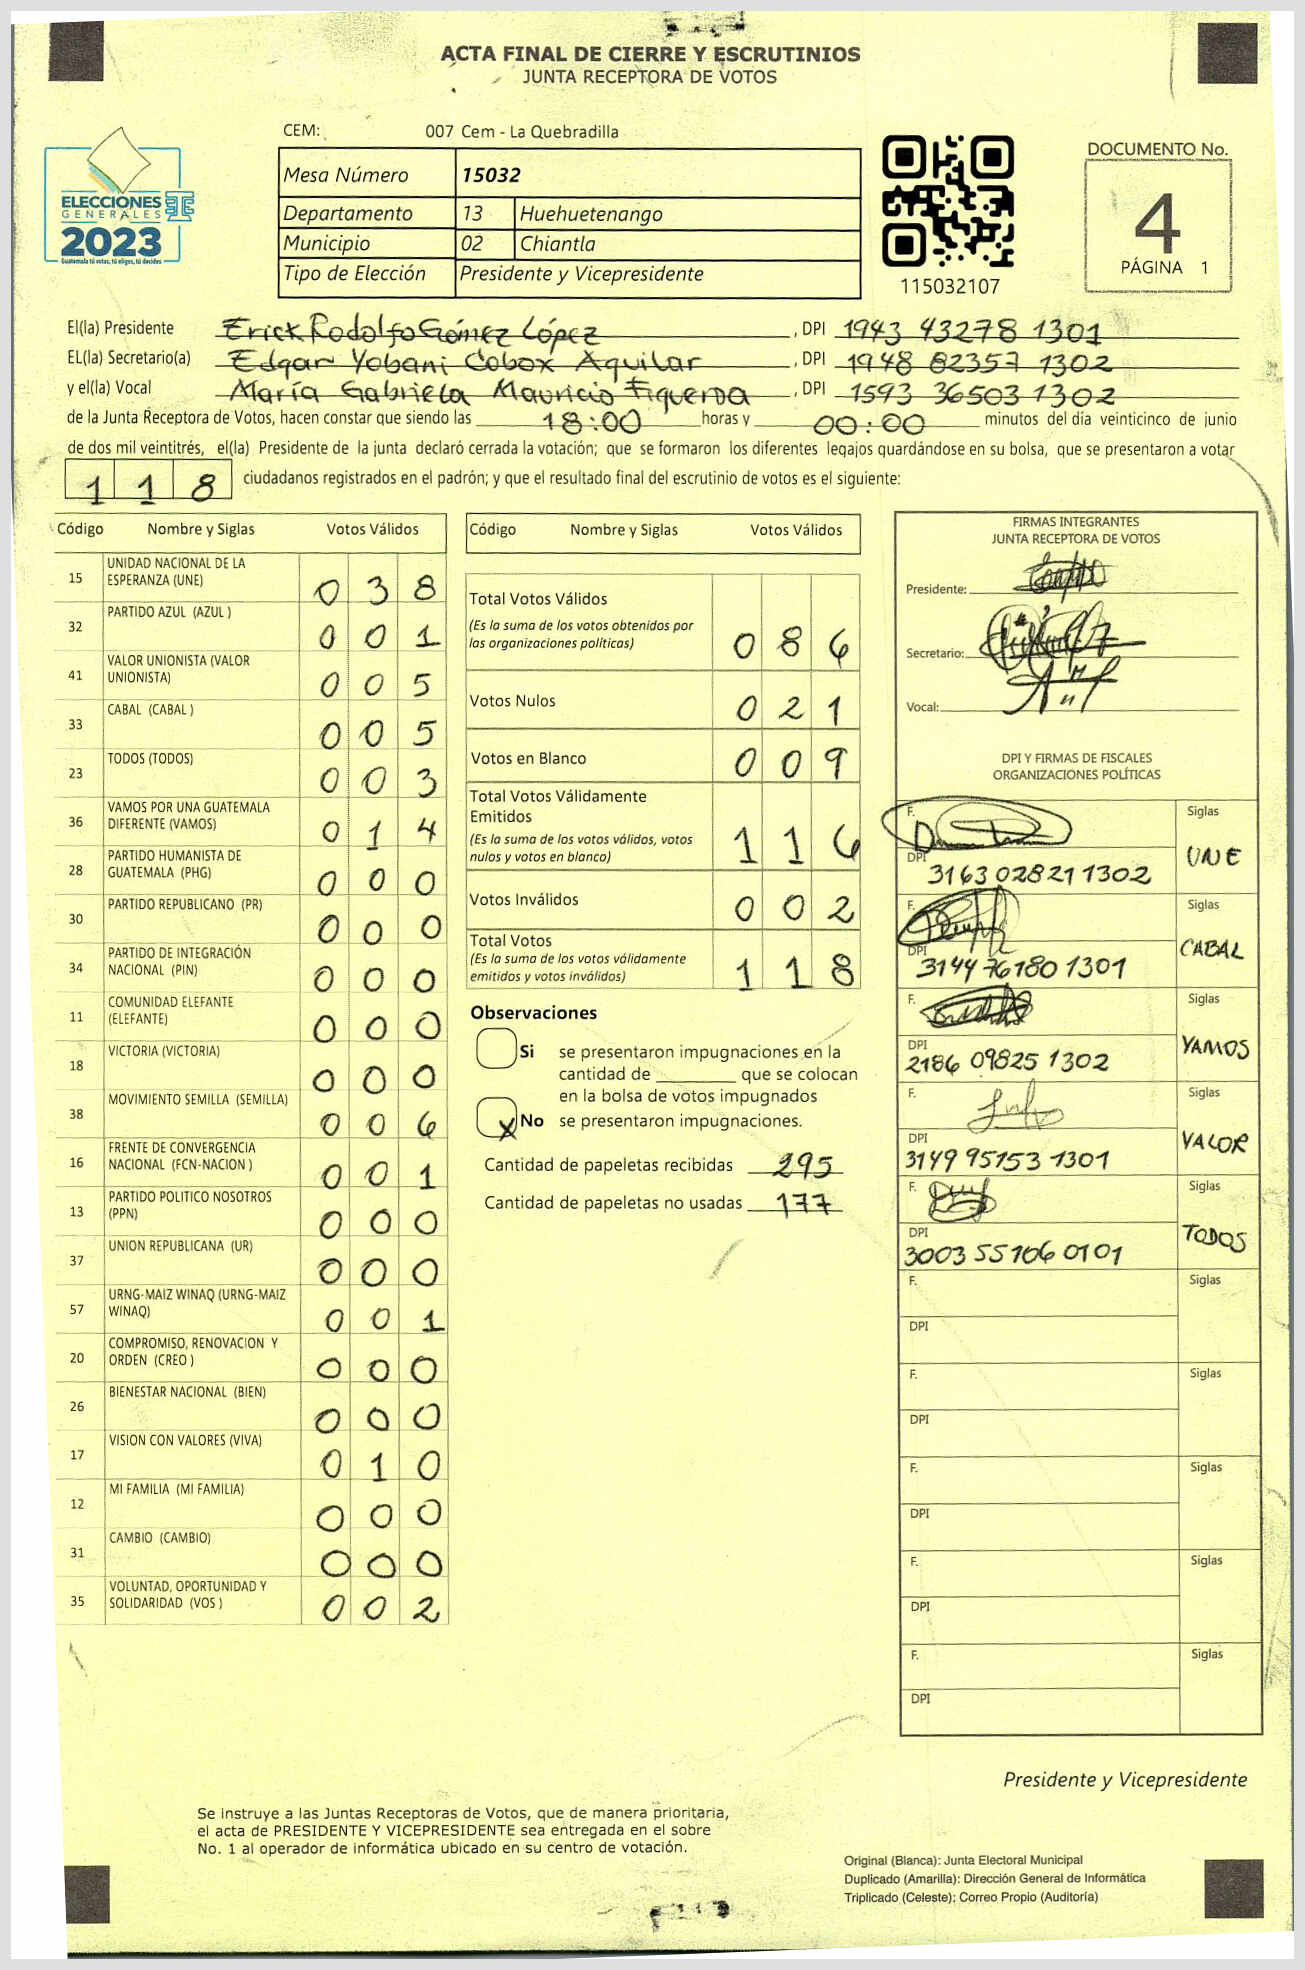 ACTA FINAL DE CIERRE Y ESCRUTINIOS
JUNTA RECEPTORA DE VOTOS
CEM: 007 Cem - La Quebradilla
ELECCIONES
GENERALES
2023
Guatemala tú votas, tú eliges, tú decides
Mesa Número 15032
Departamento 13 Huehuetenango
Municipio 02 Chiantla
Tipo de Elección Presidente y Vicepresidente
115032107
DOCUMENTO No.
4
PÁGINA 1
El(la) Presidente Erick Rodolfo Gómez López, DPI 1943 43278 1301
EL(la) Secretario(a) Edgar Yobani Cobox Aguilar, DPI 1948 82357 1302
y el(la) Vocal María Gabriela Mauricio Figueroa, DPI 1593 36503 1302
de la Junta Receptora de Votos, hacen constar que siendo las 18:00 horas y 00:00 minutos del día veinticinco de junio
de dos mil veintitrés, el(la) Presidente de la junta declaró cerrada la votación; que se formaron los diferentes legajos guardándose en su bolsa, que se presentaron a votar
1 1 8 ciudadanos registrados en el padrón; y que el resultado final del escrutinio de votos es el siguiente:
Código Nombre y Siglas Votos Válidos
15 UNIDAD NACIONAL DE LA
ESPERANZA (UNE) 0 3 8
32 PARTIDO AZUL (AZUL ) 0 0 1
41 VALOR UNIONISTA (VALOR
UNIONISTA) 0 0 5
33 CABAL (CABAL ) 0 0 5
23 TODOS (TODOS) 0 0 3
36 VAMOS POR UNA GUATEMALA
DIFERENTE (VAMOS) 0 1 4
28 PARTIDO HUMANISTA DE
GUATEMALA (PHG) 0 0 0
30 PARTIDO REPUBLICANO (PR) 0 0 0
34 PARTIDO DE INTEGRACIÓN
NACIONAL (PIN) 0 0 0
11 COMUNIDAD ELEFANTE
(ELEFANTE) 0 0 0
18 VICTORIA (VICTORIA) 0 0 0
38 MOVIMIENTO SEMILLA (SEMILLA) 0 0 6
16 FRENTE DE CONVERGENCIA
NACIONAL (FCN-NACION ) 0 0 1
13 PARTIDO POLITICO NOSOTROS
(PPN) 0 0 0
37 UNION REPUBLICANA (UR) 0 0 0
57 URNG-MAIZ WINAQ (URNG-MAIZ
WINAQ) 0 0 1
20 COMPROMISO, RENOVACION Y
ORDEN (CREO ) 0 0 0
26 BIENESTAR NACIONAL (BIEN) 0 0 0
17 VISION CON VALORES (VIVA) 0 1 0
12 MI FAMILIA (MI FAMILIA) 0 0 0
31 CAMBIO (CAMBIO) 0 0 0
35 VOLUNTAD, OPORTUNIDAD Y
SOLIDARIDAD (VOS ) 0 0 2
Código Nombre y Siglas Votos Válidos
Total Votos Válidos
(Es la suma de los votos obtenidos por
las organizaciones políticas) 0 8 6
Votos Nulos 0 2 1
Votos en Blanco 0 0 9
Total Votos Válidamente
Emitidos
(Es la suma de los votos válidos, votos
nulos y votos en blanco) 1 1 6
Votos Inválidos 0 0 2
Total Votos
(Es la suma de los votos válidamente
emitidos y votos inválidos) 1 1 8
Observaciones
Si se presentaron impugnaciones en la
cantidad de ________ que se colocan
en la bolsa de votos impugnados
X No se presentaron impugnaciones.
Cantidad de papeletas recibidas 295
Cantidad de papeletas no usadas 177
FIRMAS INTEGRANTES
JUNTA RECEPTORA DE VOTOS
Presidente:
Secretario:
Vocal:
DPI Y FIRMAS DE FISCALES
ORGANIZACIONES POLÍTICAS
F. Siglas
DPI 3163 02821 1302 UNE
F. Siglas
DPI 3144 76180 1301 CABAL
F. Siglas
DPI 2186 09825 1302 VAMOS
F. Siglas
DPI 3149 95153 1301 VALOR
F. Siglas
DPI 3003 55106 0101 TODOS
F. Siglas
DPI
F. Siglas
DPI
F. Siglas
DPI
F. Siglas
DPI
F. Siglas
DPI
Presidente y Vicepresidente
Se instruye a las Juntas Receptoras de Votos, que de manera prioritaria,
el acta de PRESIDENTE Y VICEPRESIDENTE sea entregada en el sobre
No. 1 al operador de informática ubicado en su centro de votación.
Original (Blanca): Junta Electoral Municipal
Duplicado (Amarilla): Dirección General de Informática
Triplicado (Celeste): Correo Propio (Auditoría)